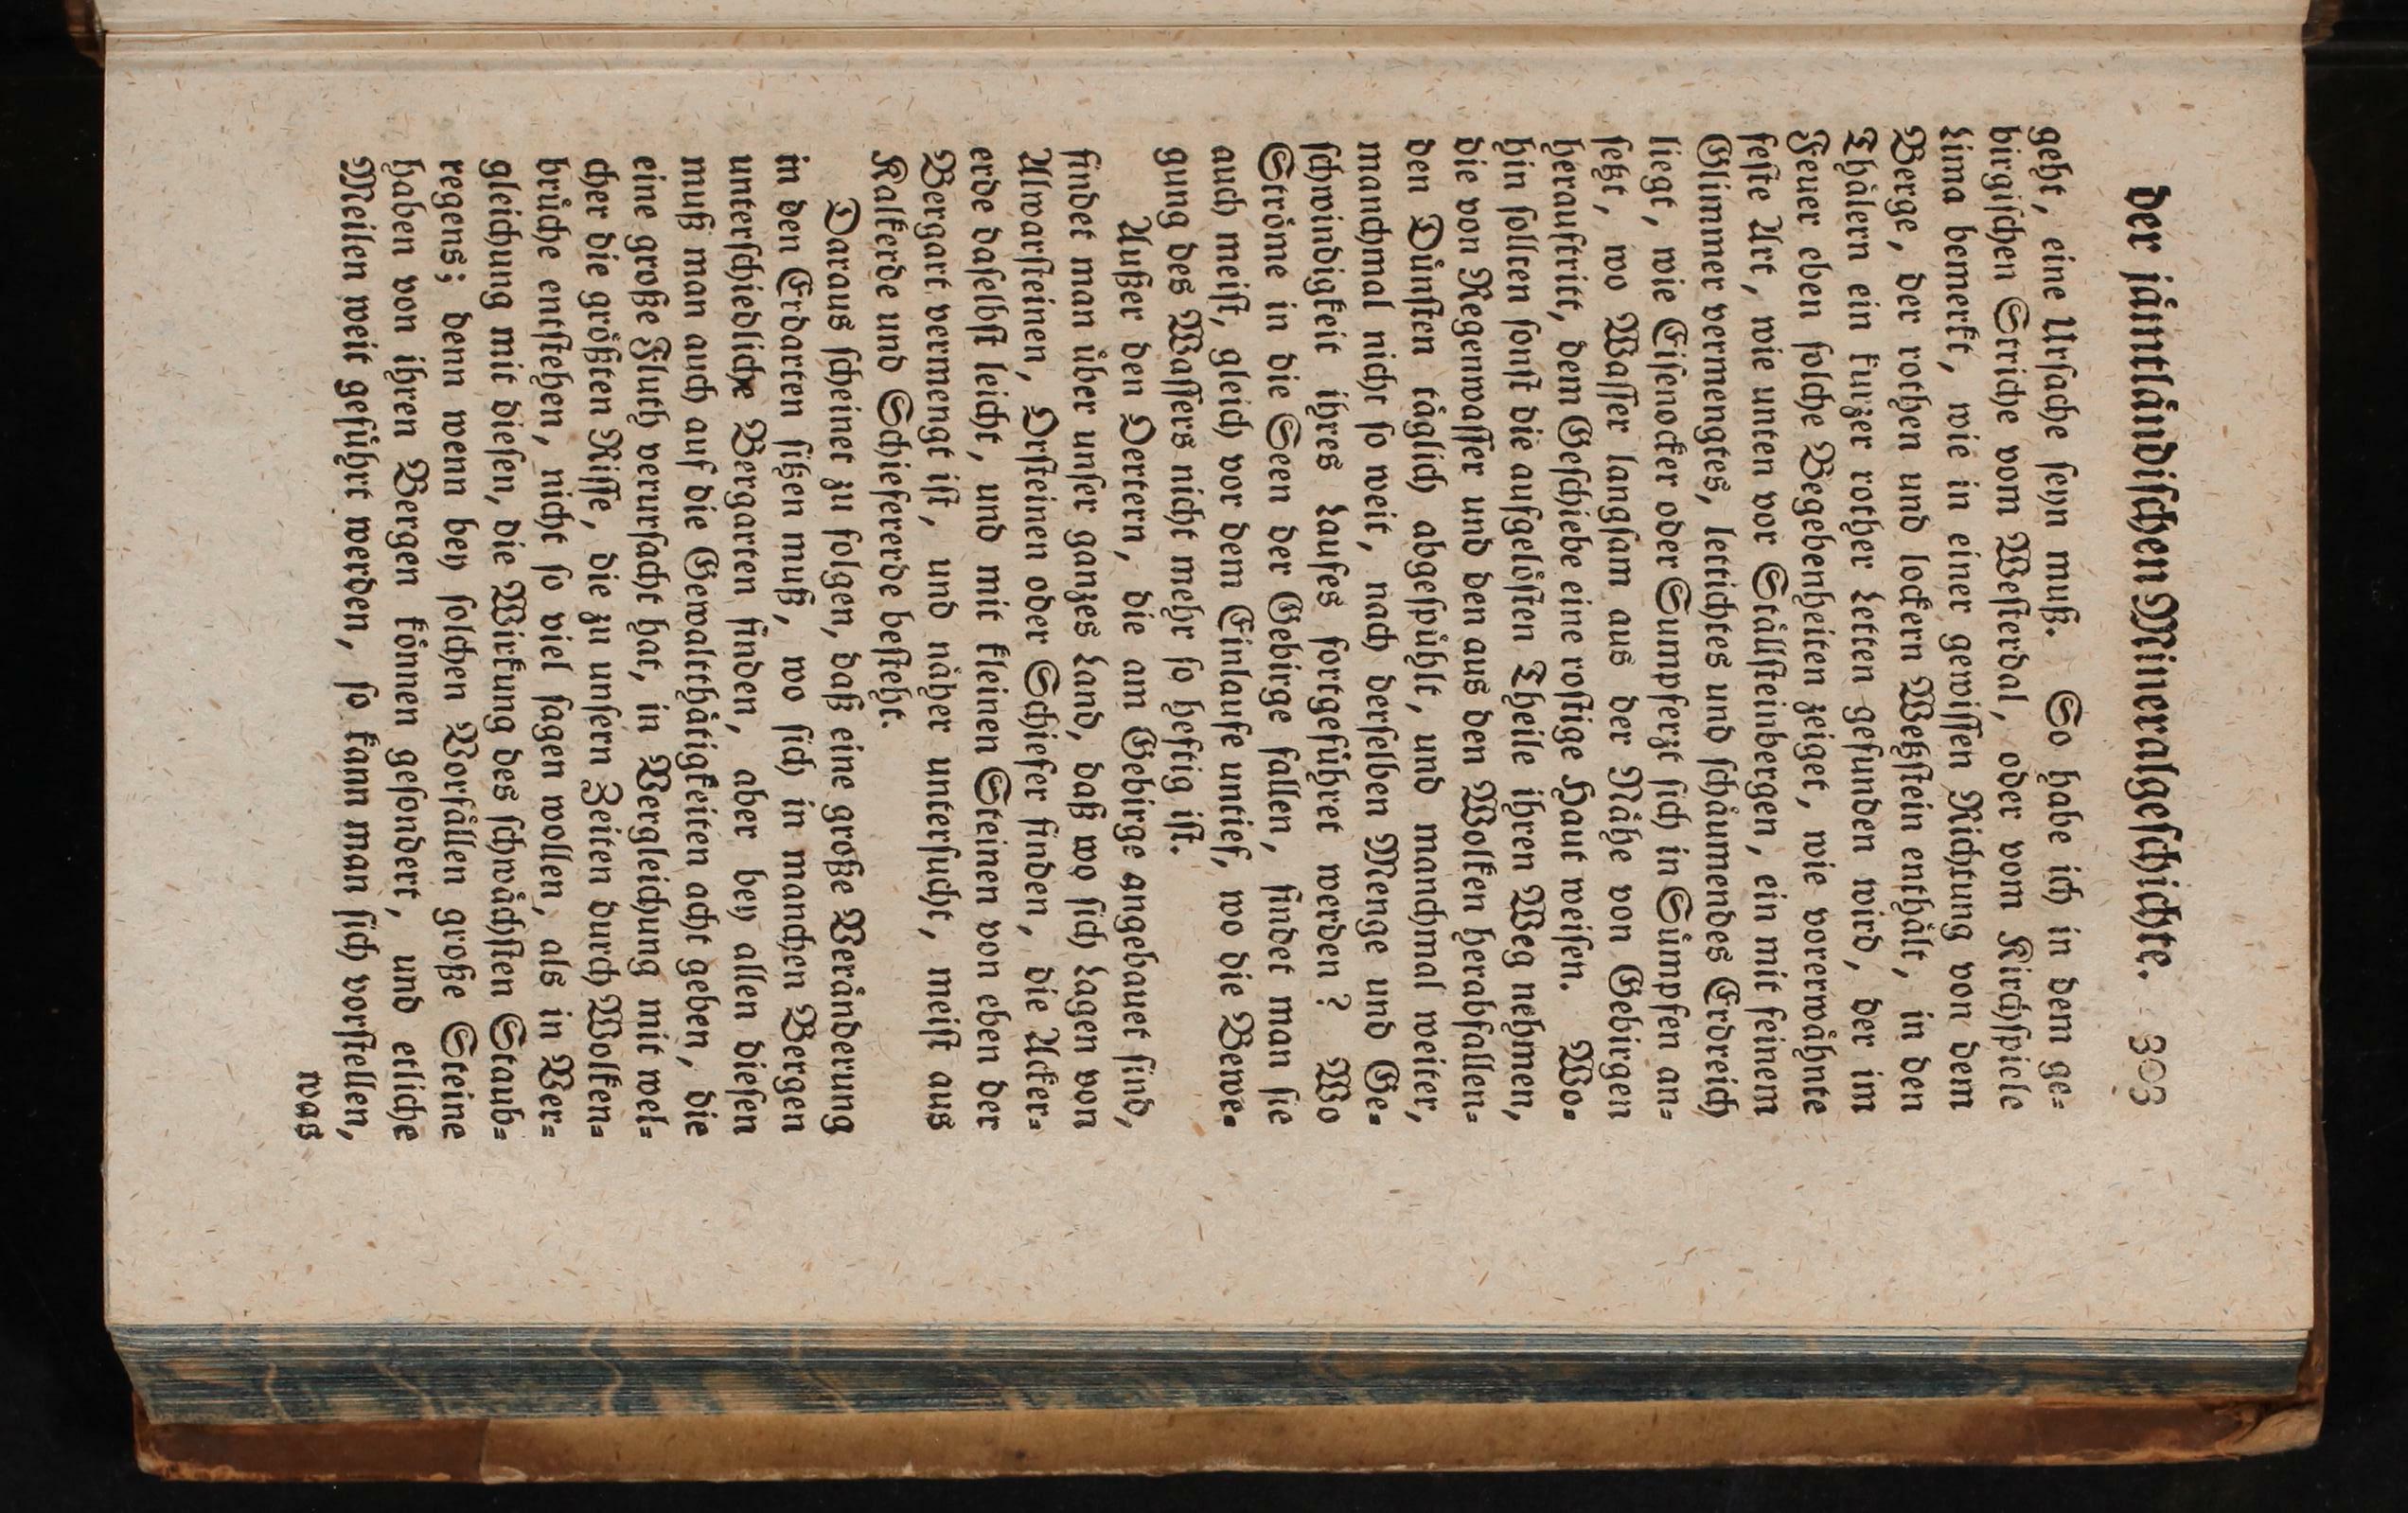 der jämtländischen Mineralgeschichte. 303
geht, eine Ursache seyn muß. So habe ich in dem ge-
birgischen Striche vom Westerdal, oder vom Kirchspiele
Lima bemerkt, wie in einer gewissen Richtung von dem
Berge, der rothen und lockern Wetzstein enthält, in den
Thälern ein kurzer rother Letten gefunden wird, der im
Feuer eben solche Begebenheiten zeiget, wie vorerwähnte
feste Art, wie unten vor Ställsteinbergen, ein mit feinem
Glimmer vermengtes, lettichtes und schäumendes Erdreich
liegt, wie Eisenocker oder Sumpferzt sich in Sümpfen an-
setzt, wo Wasser langsam aus der Nähe von Gebirgen
herauftritt, dem Geschiebe eine rostige Haut weisen. Wo-
hin sollten sonst die aufgelösten Theile ihren Weg nehmen,
die von Regenwasser und den aus den Wolken herabfallen-
den Dünsten täglich abgespühlt, und manchmal weiter,
manchmal nicht so weit, nach derselben Menge und Ge-
schwindigkeit ihres Laufes fortgeführet werden? Wo
Ströme in die Seen der Gebirge fallen, findet man sie
auch meist, gleich vor dem Einlaufe untief, wo die Bewe-
gung des Wassers nicht mehr so heftig ist.
Außer den Oertern, die am Gebirge angebauet sind,
findet man über unser ganzes Land, daß wo sich Lagen von
Alwarsteinen, Orsteinen oder Schiefer finden, die Acker-
erde daselbst leicht, und mit kleinen Steinen von eben der
Bergart vermengt ist, und näher untersucht, meist aus
Kalkerde und Schiefererde besteht.
Daraus scheinet zu folgen, daß eine große Veränderung
in den Erdarten sitzen muß, wo sich in manchen Bergen
unterschiedliche Bergarten finden, aber bey allen diesen
muß man auch auf die Gewaltthätigkeiten acht geben, die
eine große Fluth verursacht hat, in Vergleichung mit wel-
cher die größten Risse, die zu unsern Zeiten durch Wolken-
brüche entstehen, nicht so viel sagen wollen, als in Ver-
gleichung mit diesen, die Wirkung des schwächsten Staub-
regens; denn wenn bey solchen Vorfällen große Steine
haben von ihren Bergen können gesondert, und etliche
Meilen weit geführt werden, so kann man sich vorstellen,
was